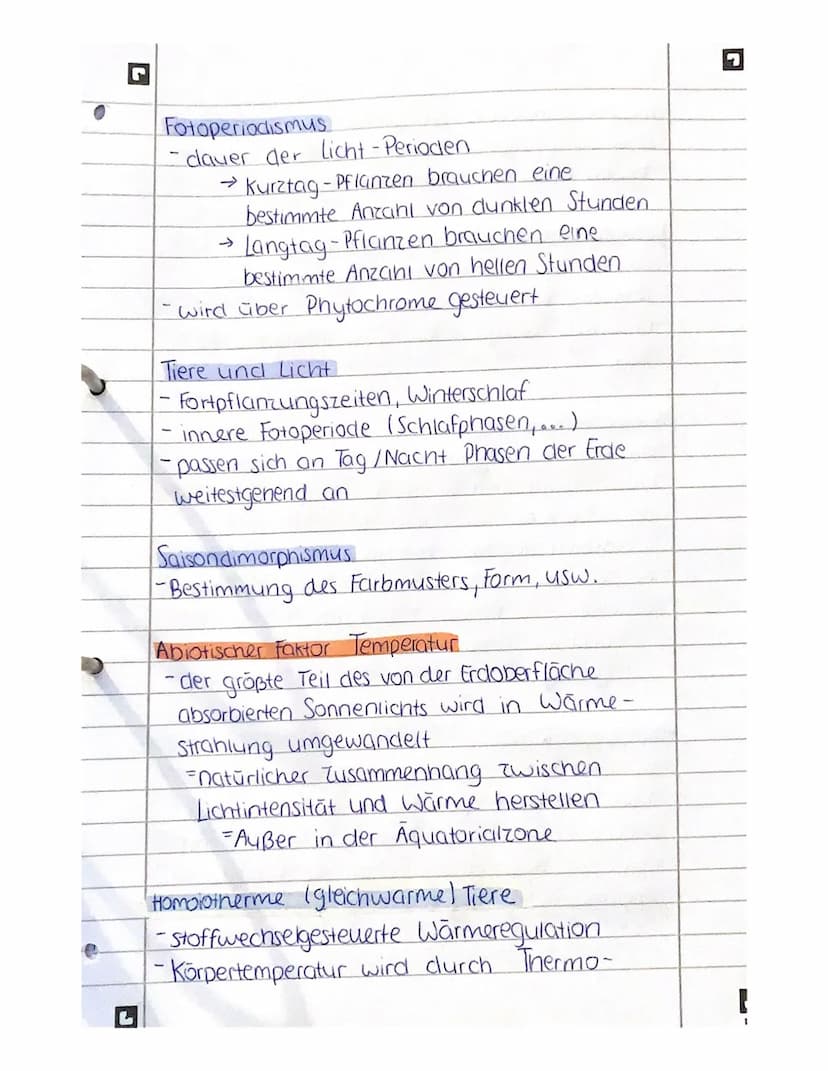 Fotoperiodismus
- dauer der Licht-Perioden
→ Kurztag-Pflanzen brauchen eine
bestimmte Anzahl von dunklen Stunden
→ Langtag-Pflanzen brauchen eine
bestimmte Anzahl von hellen Stunden
- wird über Phytochrome gesteuert
Tiere und Licht
- Fortpflanzungszeiten, Winterschlaf
- innere Fotoperiode (Schlafphasen,...)
- passen sich an Tag/Nacht Phasen der Erde
weitestgehend an
Saisondimorphismus
- Bestimmung des Farbmusters, Form, usw.
Abiotischer Faktor Temperatur
- der größte Teil des von der Erdoberfläche
absorbierten Sonnenlichts wird in Wärme-
strahlung umgewandelt
=natürlicher Zusammenhang zwischen
Lichtintensität und Wärme herstellen
=Außer in der Äquatorialzone
Homoiotherme (gleichwarme) Tiere
- stoffwechselgesteuerte Wärmeregulation
- Körpertemperatur wird durch Thermo-